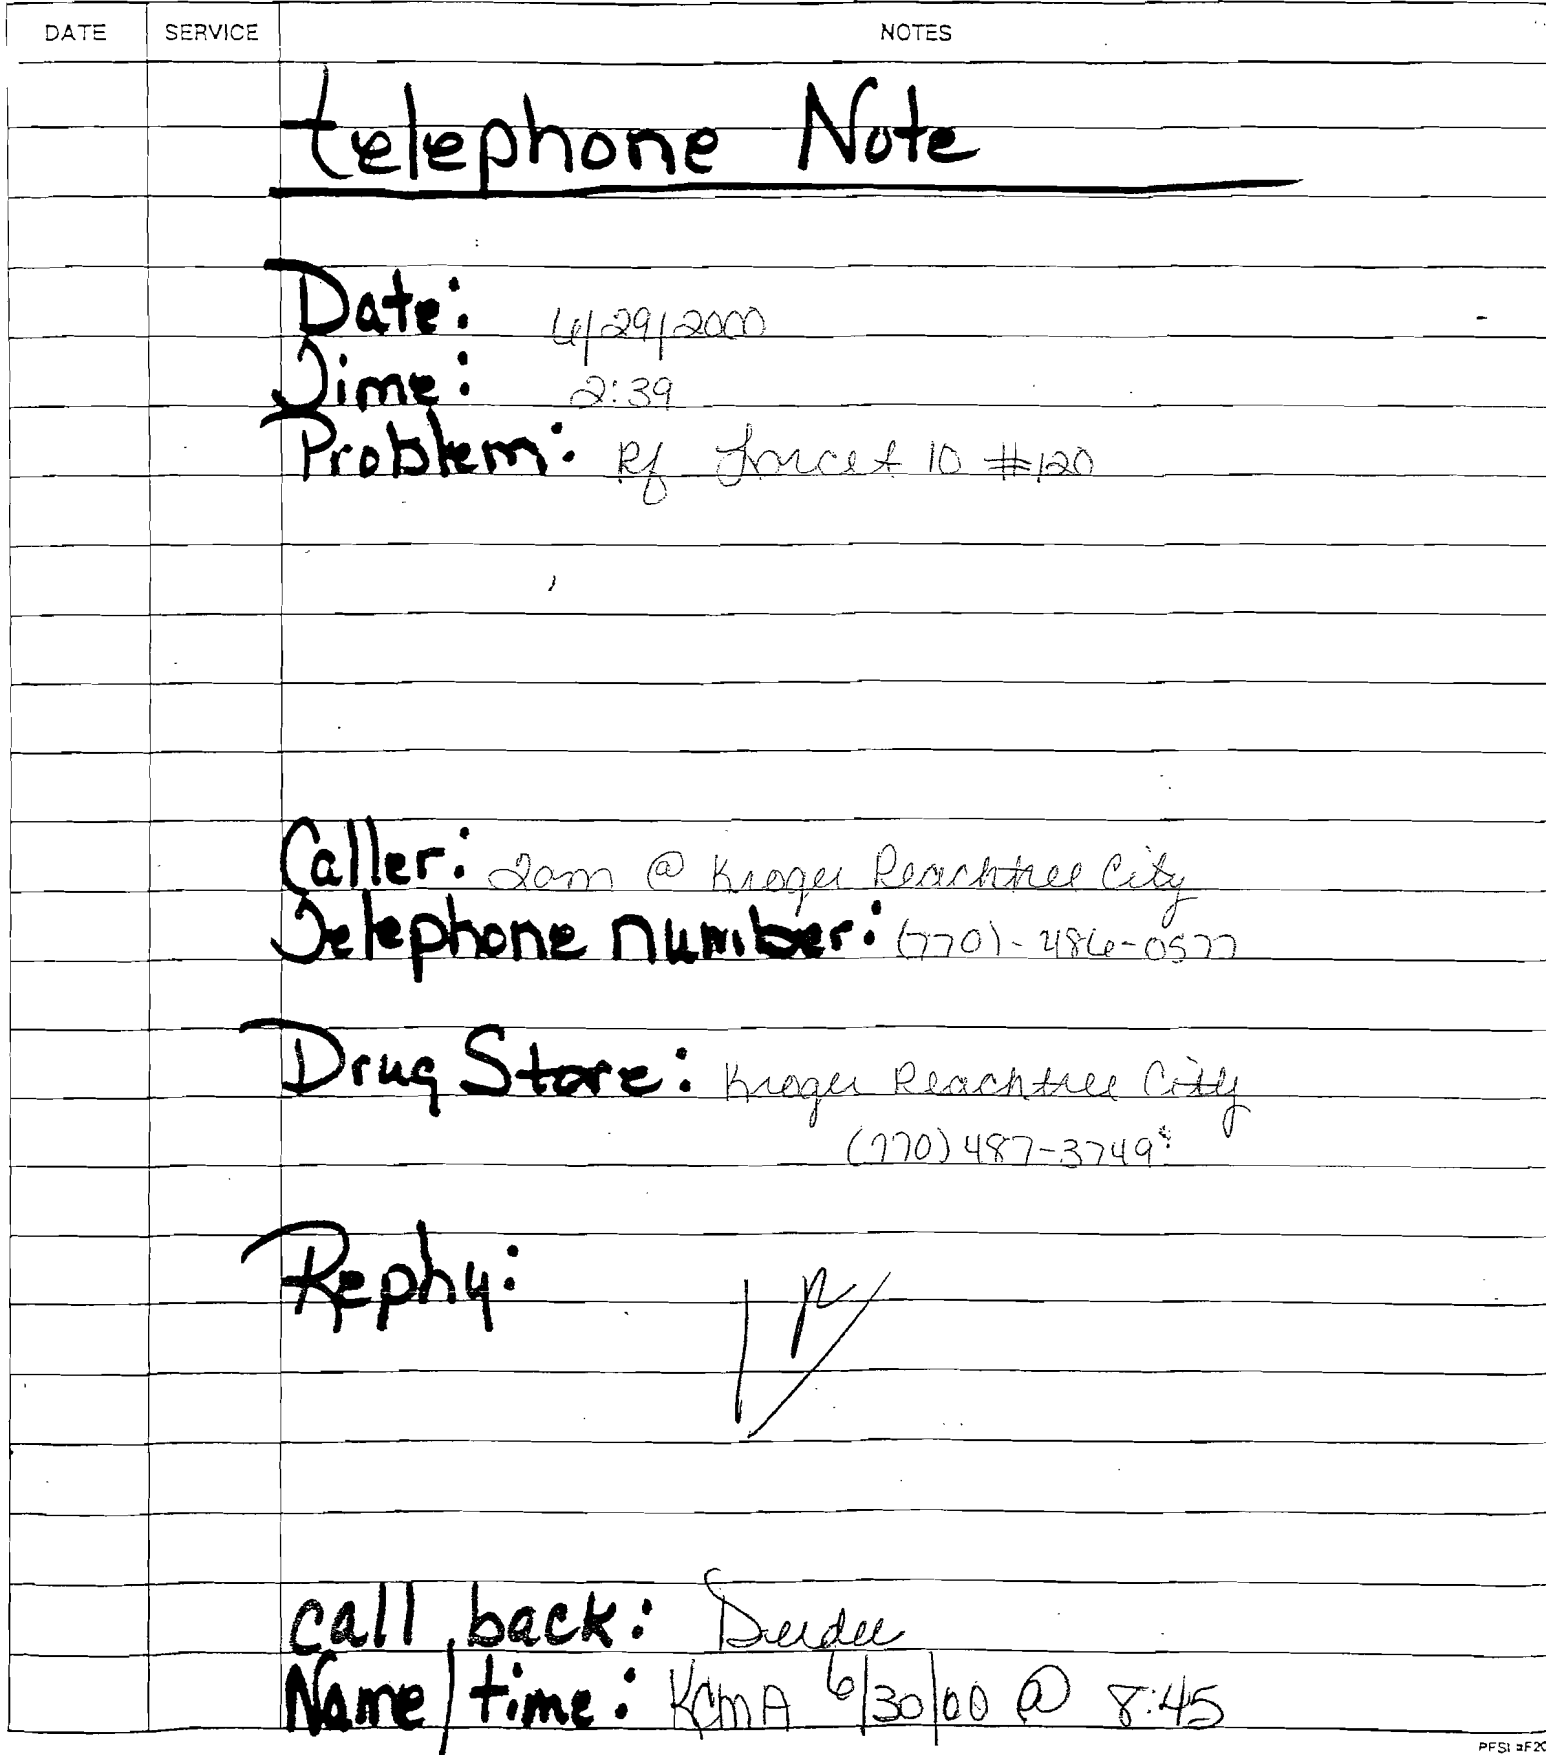 DATE SERVICE NOTES
telephone Note
Date: 6/29/2000
Time: 2:39
Problem: Rf Lorcet 10 #120
Caller: @ Kroger Peachtree City
Telephone number: (770)-486-0577
Drug Store: Kroger Peachtree City
(770) 487-3749
Rephy:
call back:
Name/time: 6/30/00 @ 8:45